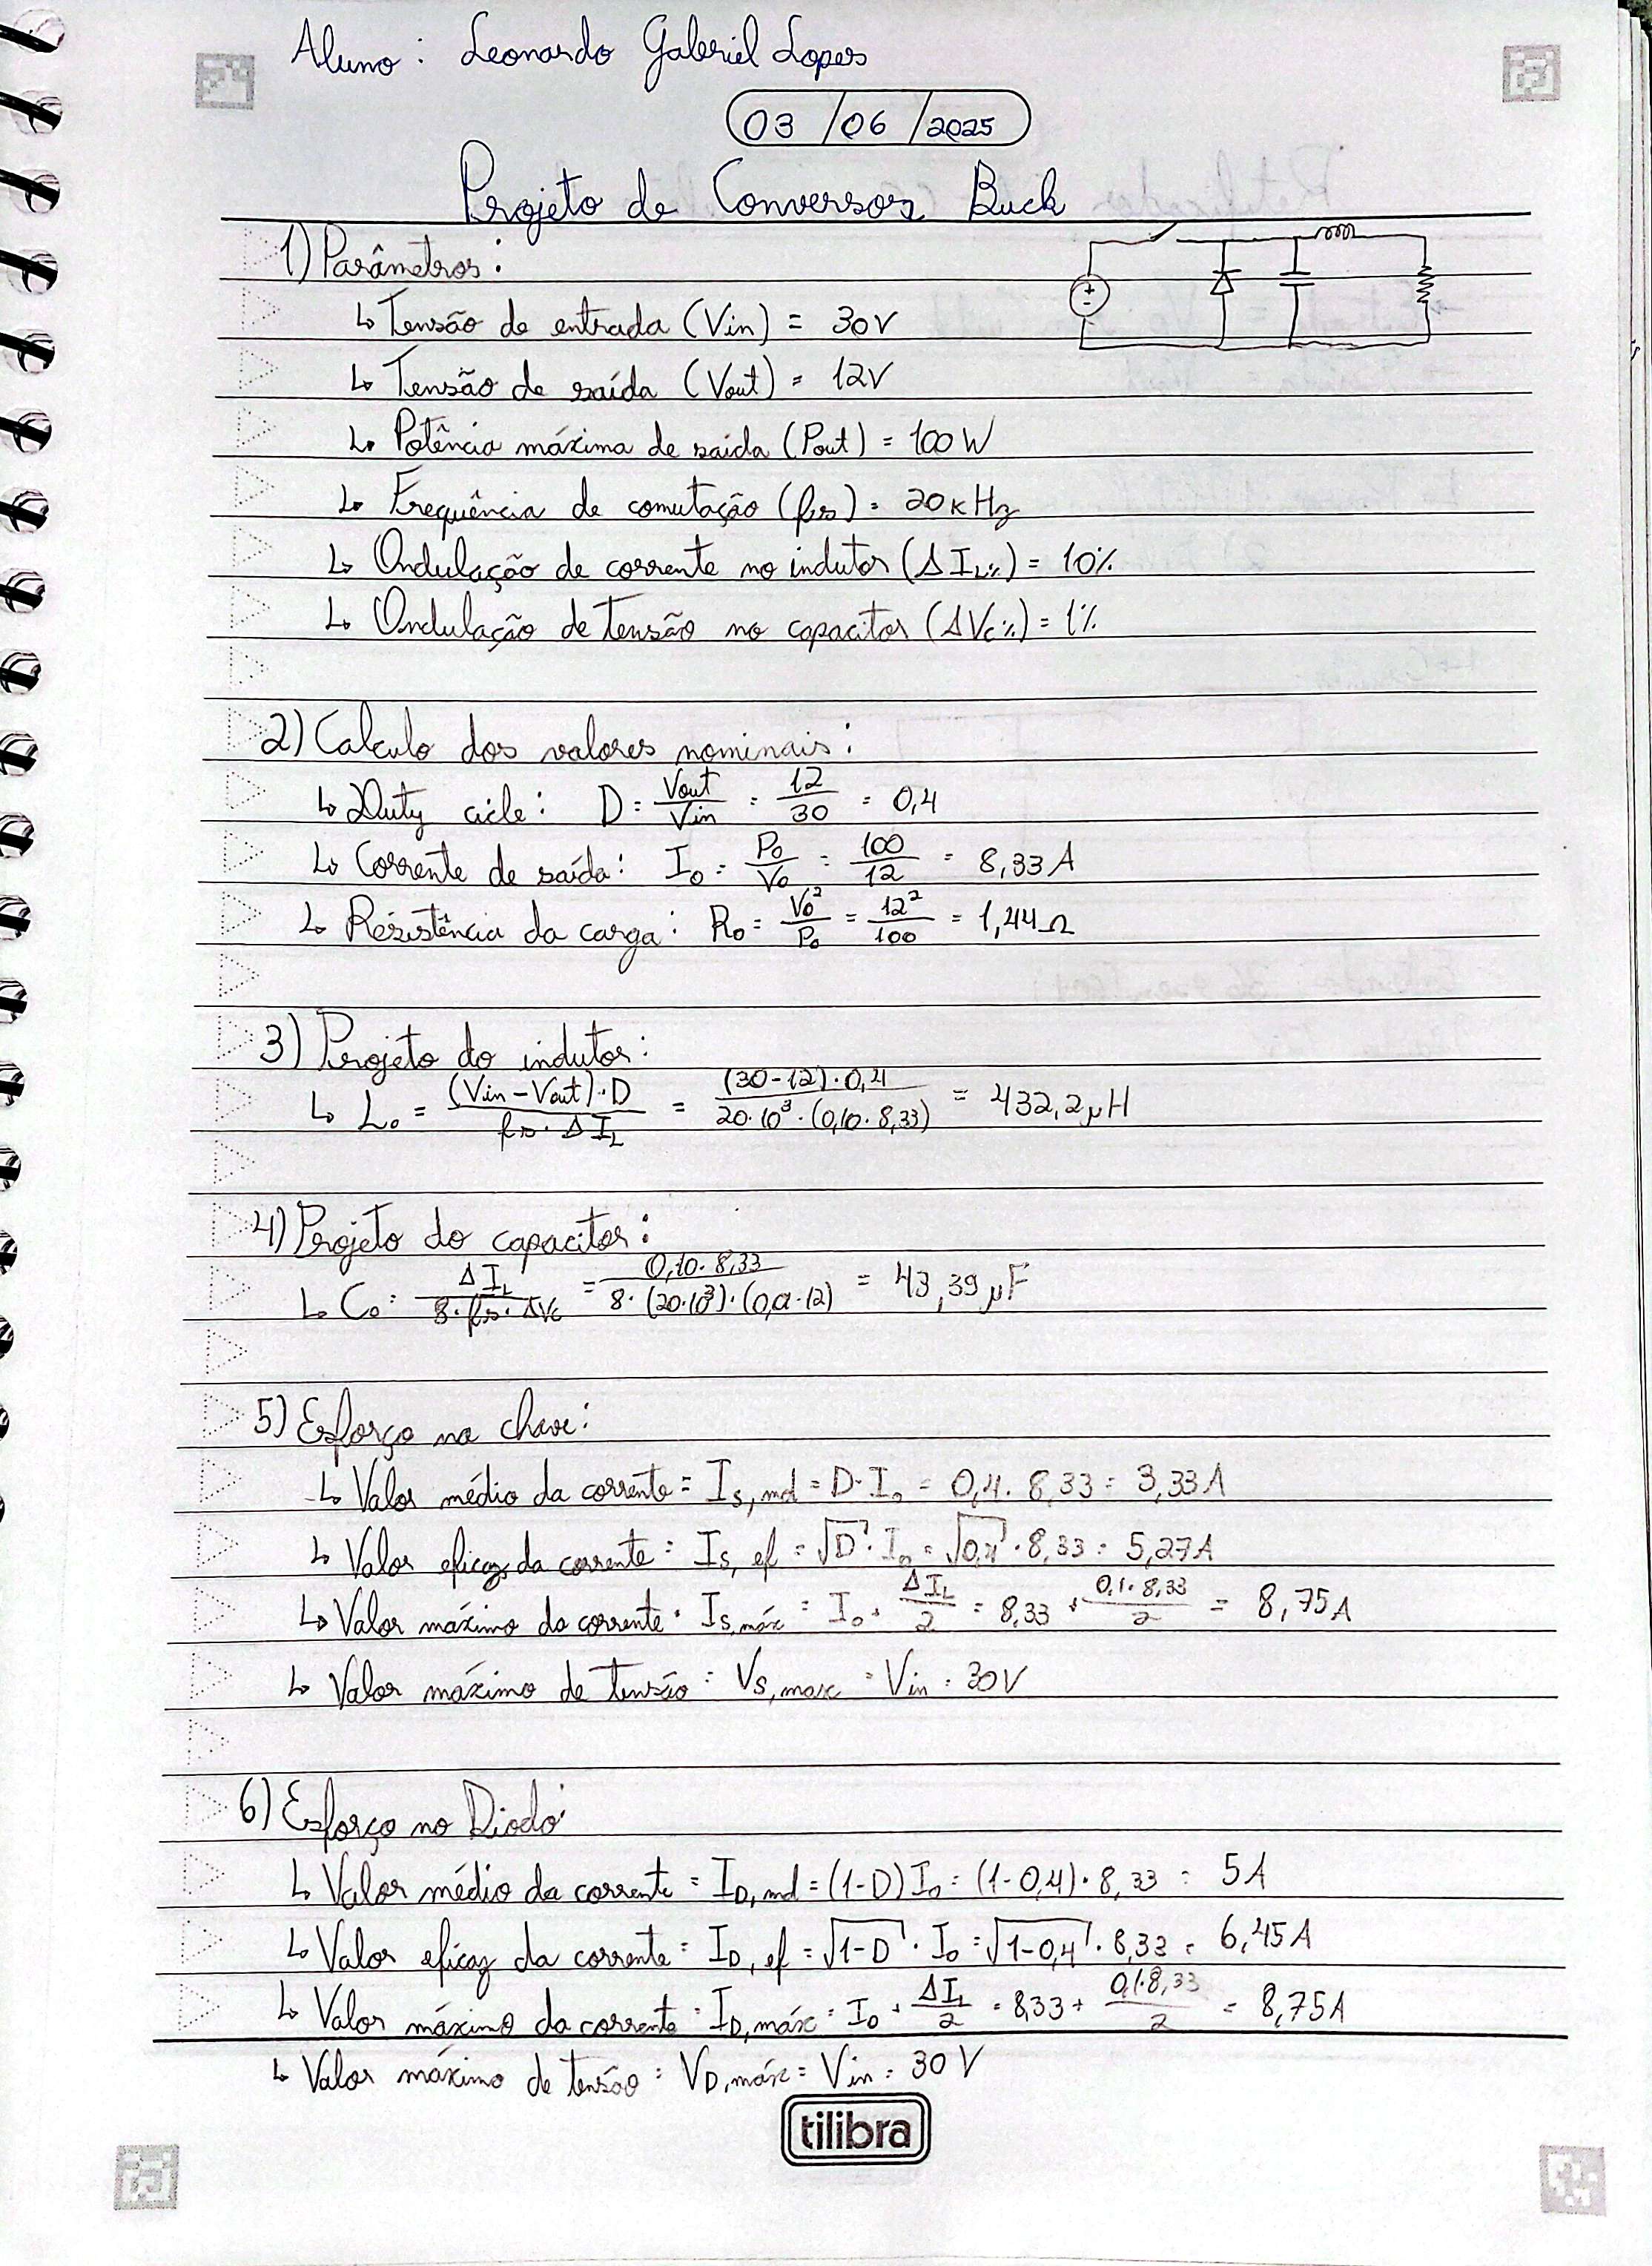 Aluno: Leonardo Gabriel Lopes
03/06/2025
Projeto de Conversor Buck
1) Parâmetros:
↳ Tensão de entrada (Vin) = 30V
↳ Tensão de saída (Vout) = 12V
↳ Potência máxima de saída (Pout) = 100W
↳ Frequência de comutação (fs) = 20kHz
↳ Ondulação de corrente no indutor (ΔIL%) = 10%
↳ Ondulação de tensão no capacitor (ΔVc%) = 1%
2) Calculo dos valores nominais:
↳ Duty cicle: D = Vout/Vin = 12/30 = 0,4
↳ Corrente de saída: Io = Po/Vo = 100/12 = 8,33A
↳ Resistência da carga: Ro = Vo²/Po = 12²/100 = 1,44Ω
3) Projeto do indutor:
↳ Lo = (Vin-Vout)·D/fs·ΔIL = (30-12)·0,4/20·10³·(0,10·8,33) = 432,2μH
4) Projeto do capacitor:
↳ Co = ΔIL/8·fs·ΔVc = 0,10·8,33/8·(20·10³)·(0,01·12) = 43,39μF
5) Esforço na chave:
↳ Valor médio da corrente = Is,md = D·Io = 0,4·8,33 = 3,33A
↳ Valor eficaz da corrente = Is,ef = √D·Io = √0,4·8,33 = 5,27A
↳ Valor máximo da corrente = Is,máx = Io + ΔIL/2 = 8,33 + 0,1·8,33/2 = 8,75A
↳ Valor máximo de tensão = Vs,max = Vin = 30V
6) Esforço no Diodo:
↳ Valor médio da corrente = ID,md = (1-D)Io = (1-0,4)·8,33 = 5A
↳ Valor eficaz da corrente = ID,ef = √1-D·Io = √1-0,4·8,33 = 6,45A
↳ Valor máximo da corrente = ID,máx = Io + ΔIL/2 = 8,33 + 0,1·8,33/2 = 8,75A
↳ Valor máximo de tensão = VD,máx = Vin = 30V
tilibra